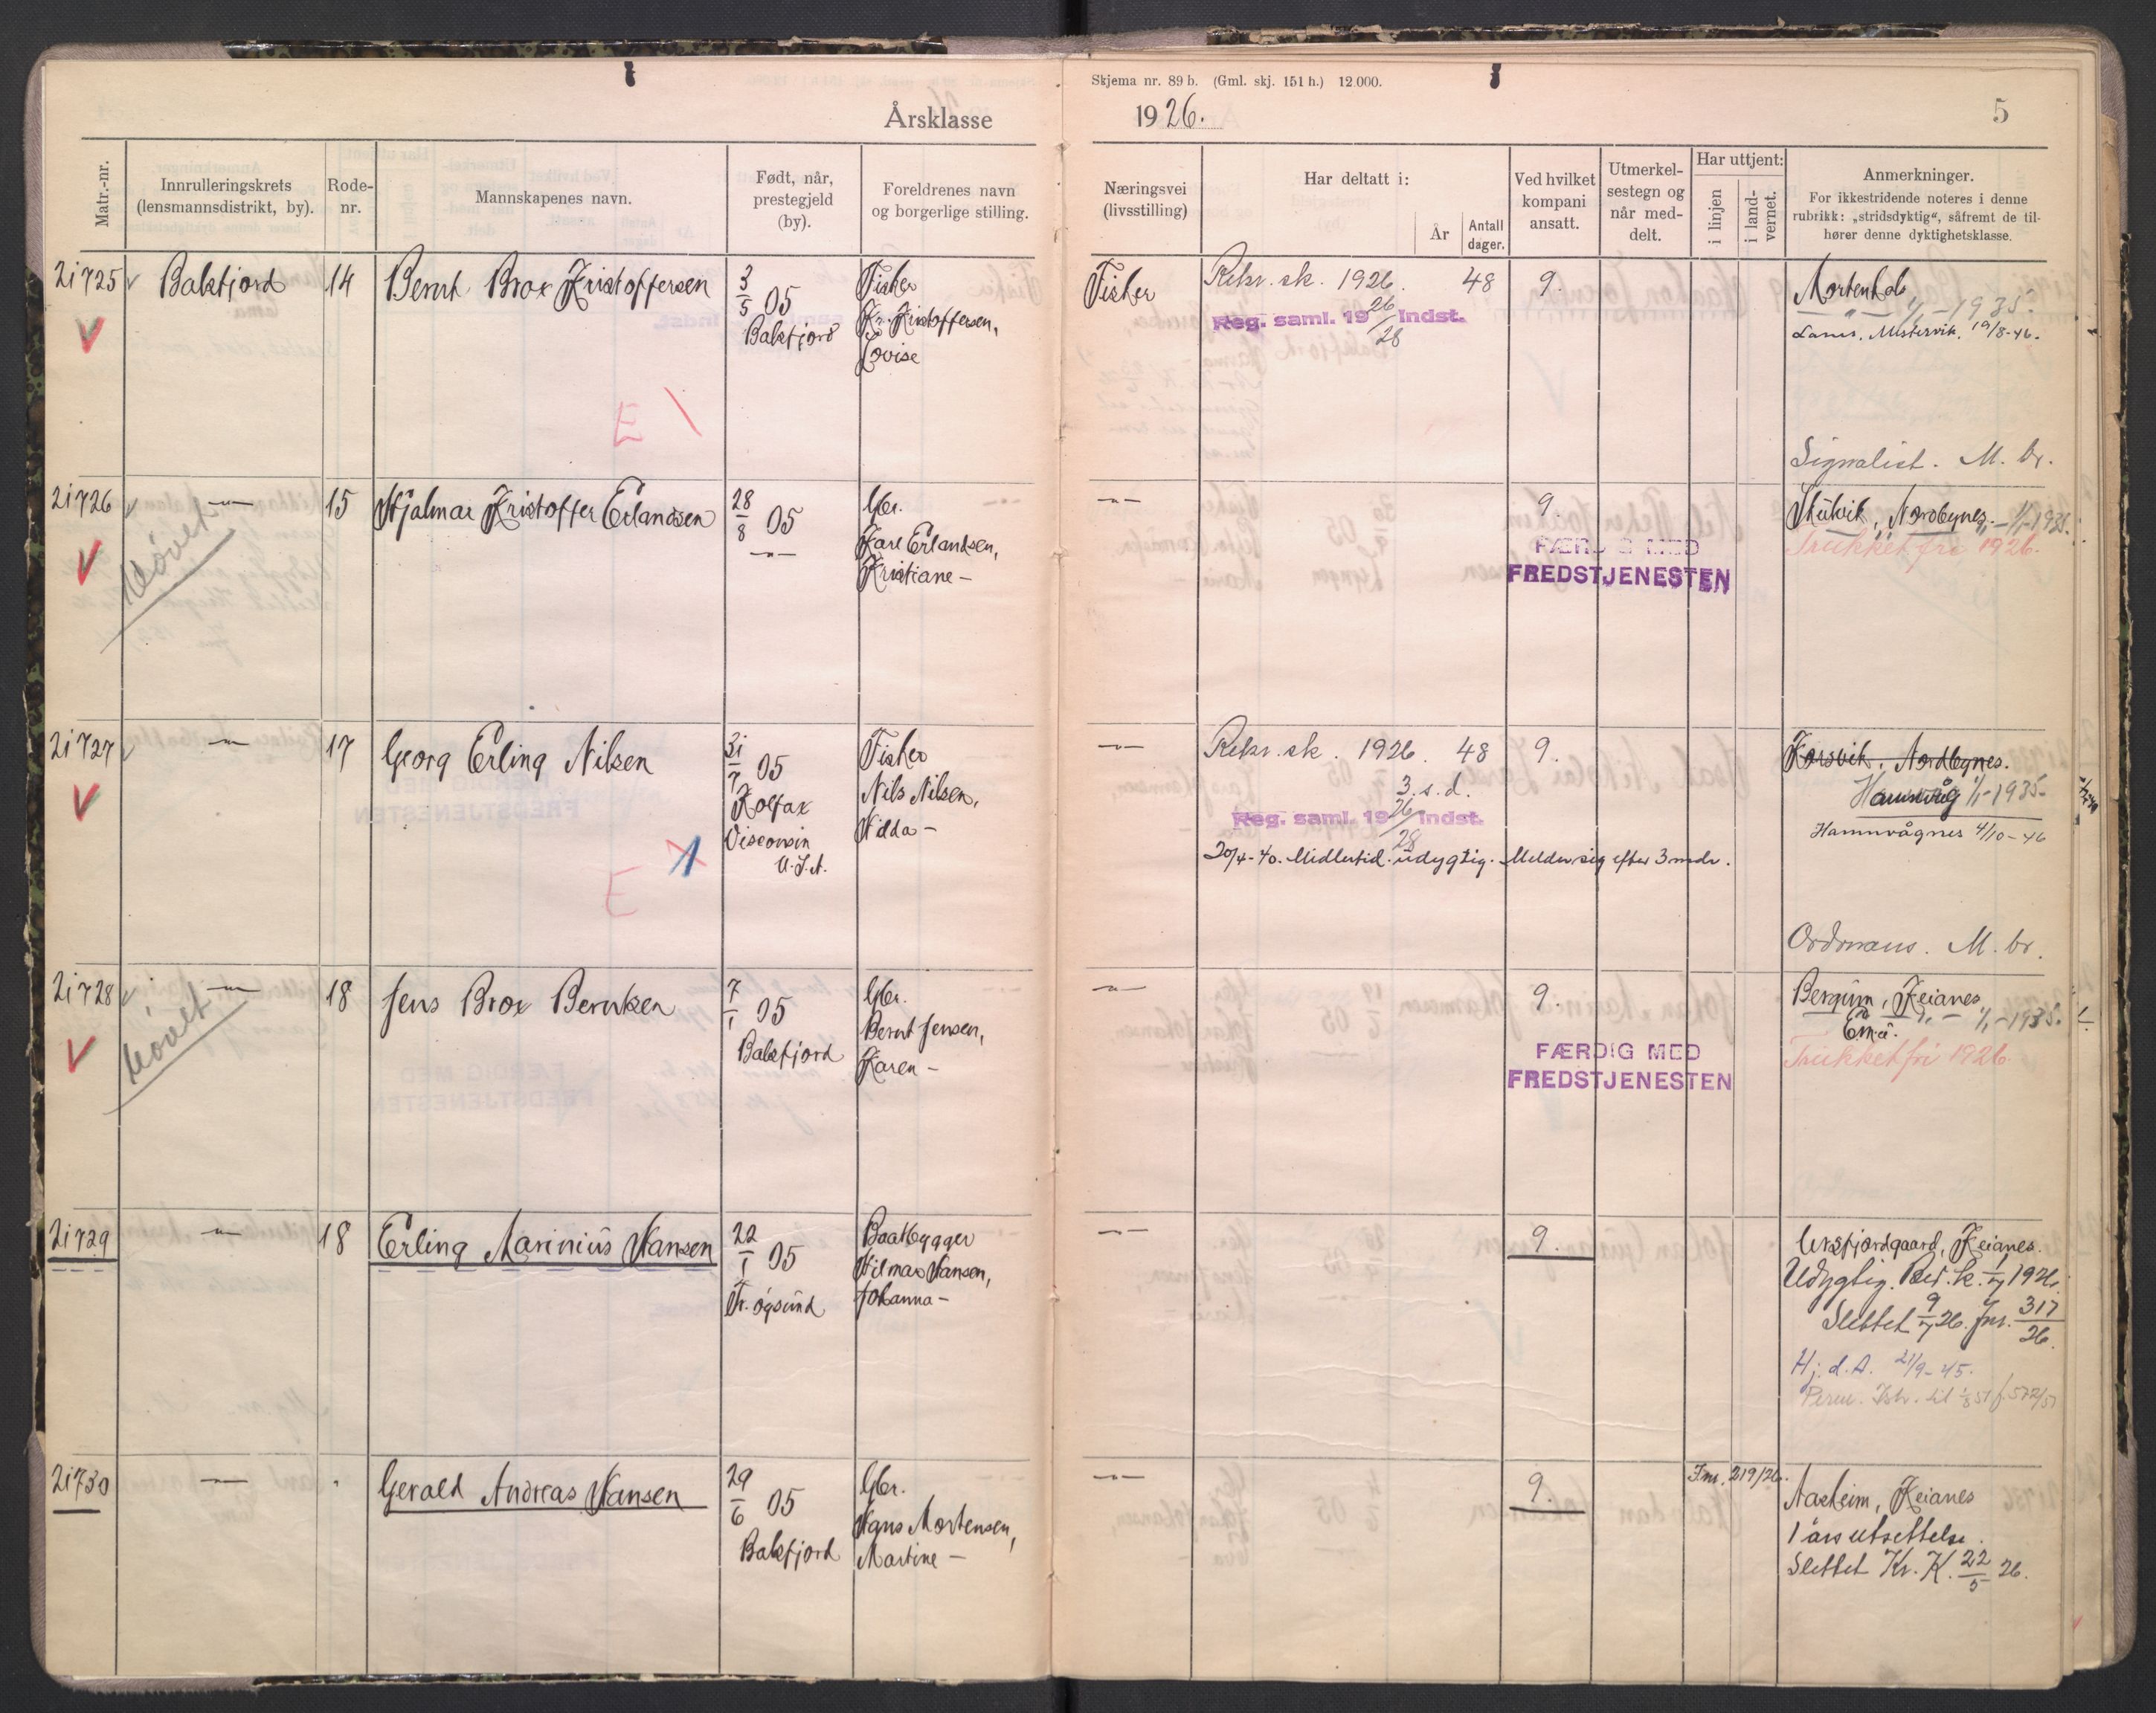 Skjema nr. 89 b. (Gml. skj. 151 h.) 12.000.
Årsklasse 1926. 5
Matr.-nr.
Innrulleringskrets (lensmannsdistrikt, by).
Rode-nr.
Mannskapenes navn.
Født, når, prestegjeld (by).
Foreldrenes navn og borgerlige stilling.
Næringsvei (livsstilling)
Har deltatt i:
År
Antall dager.
Ved hvilket kompani ansatt.
Utmerkelsestegn og når meddelt.
Har uttjent:
i linjen
i landvernet.
Anmerkninger.
For ikkestridende noteres i denne rubrikk: „stridsdyktig“, såfremt de tilhører denne dyktighetsklasse.
21725 Balsfjord 14 Bernt Brox Kristoffersen 3/5 05 Fisker
Balsfjord Kr. Kristoffersen,
Lovise
E
Fisker Rekr. sk. 1926. 48 9. Mortenhals
Reg. saml. 19 26/28 Indst. 1/1-1935.
19/8-46.
Signalist. M. br.
21726 -"- 15 Hjalmar Kristoffer Erlandsen 28/8 05 Gbr.
-"- Karl Erlandsen,
Kristiane -
Prøvet
-"- 9. Nordbynes. 1/1-1935.
FÆRDIG MED
FREDSTJENESTEN
Trukket fri 1926.
21727 -"- 17 Georg Erling Nilsen 31/7 05 Fisker
Kolfax Nils Nilsen,
Visconsin Hilda -
U.S.A.
E
-"- Rekr. sk. 1926. 48 9. Korsvik, Nordbynes.
3. s. d.
Reg. saml. 19 26/28 Indst.
Hamnvåg 1/1-1935-
Hamnvågnes 4/10-46
20/4-40. Midlertid. udygtig. Melder sig efter 3 mdr.
Ordonans. M. br.
21728 -"- 18 Jens Brox Berntsen 7/1 05 Gbr.
Balsfjord Bernt Jensen,
Karen -
Prøvet
-"- 9. Bergum, Keianes
1/1-1935.
FÆRDIG MED
FREDSTJENESTEN
Trukket fri 1926.
21729 -"- 18 Erling Marinius Hansen 22/1 05 Baatbygger
Tr.øysund Hilmar Hansen,
Johanna -
-"- 9. Ursfjordgaard, Keianes.
Udygtig. Rul. k. 1/7 1926.
Slettet 9/7 26. Jnr. 317/26.
H. d. A. 21/9-45.
21730 -"- Gerald Andreas Hansen 29/6 05 Gbr.
Balsfjord Hans Mortensen,
Martine -
-"- 9. Jnr. 219/26. Aasheim, Keianes
1 års utsettelse.
Slettet Kr. K. 22/5 26.